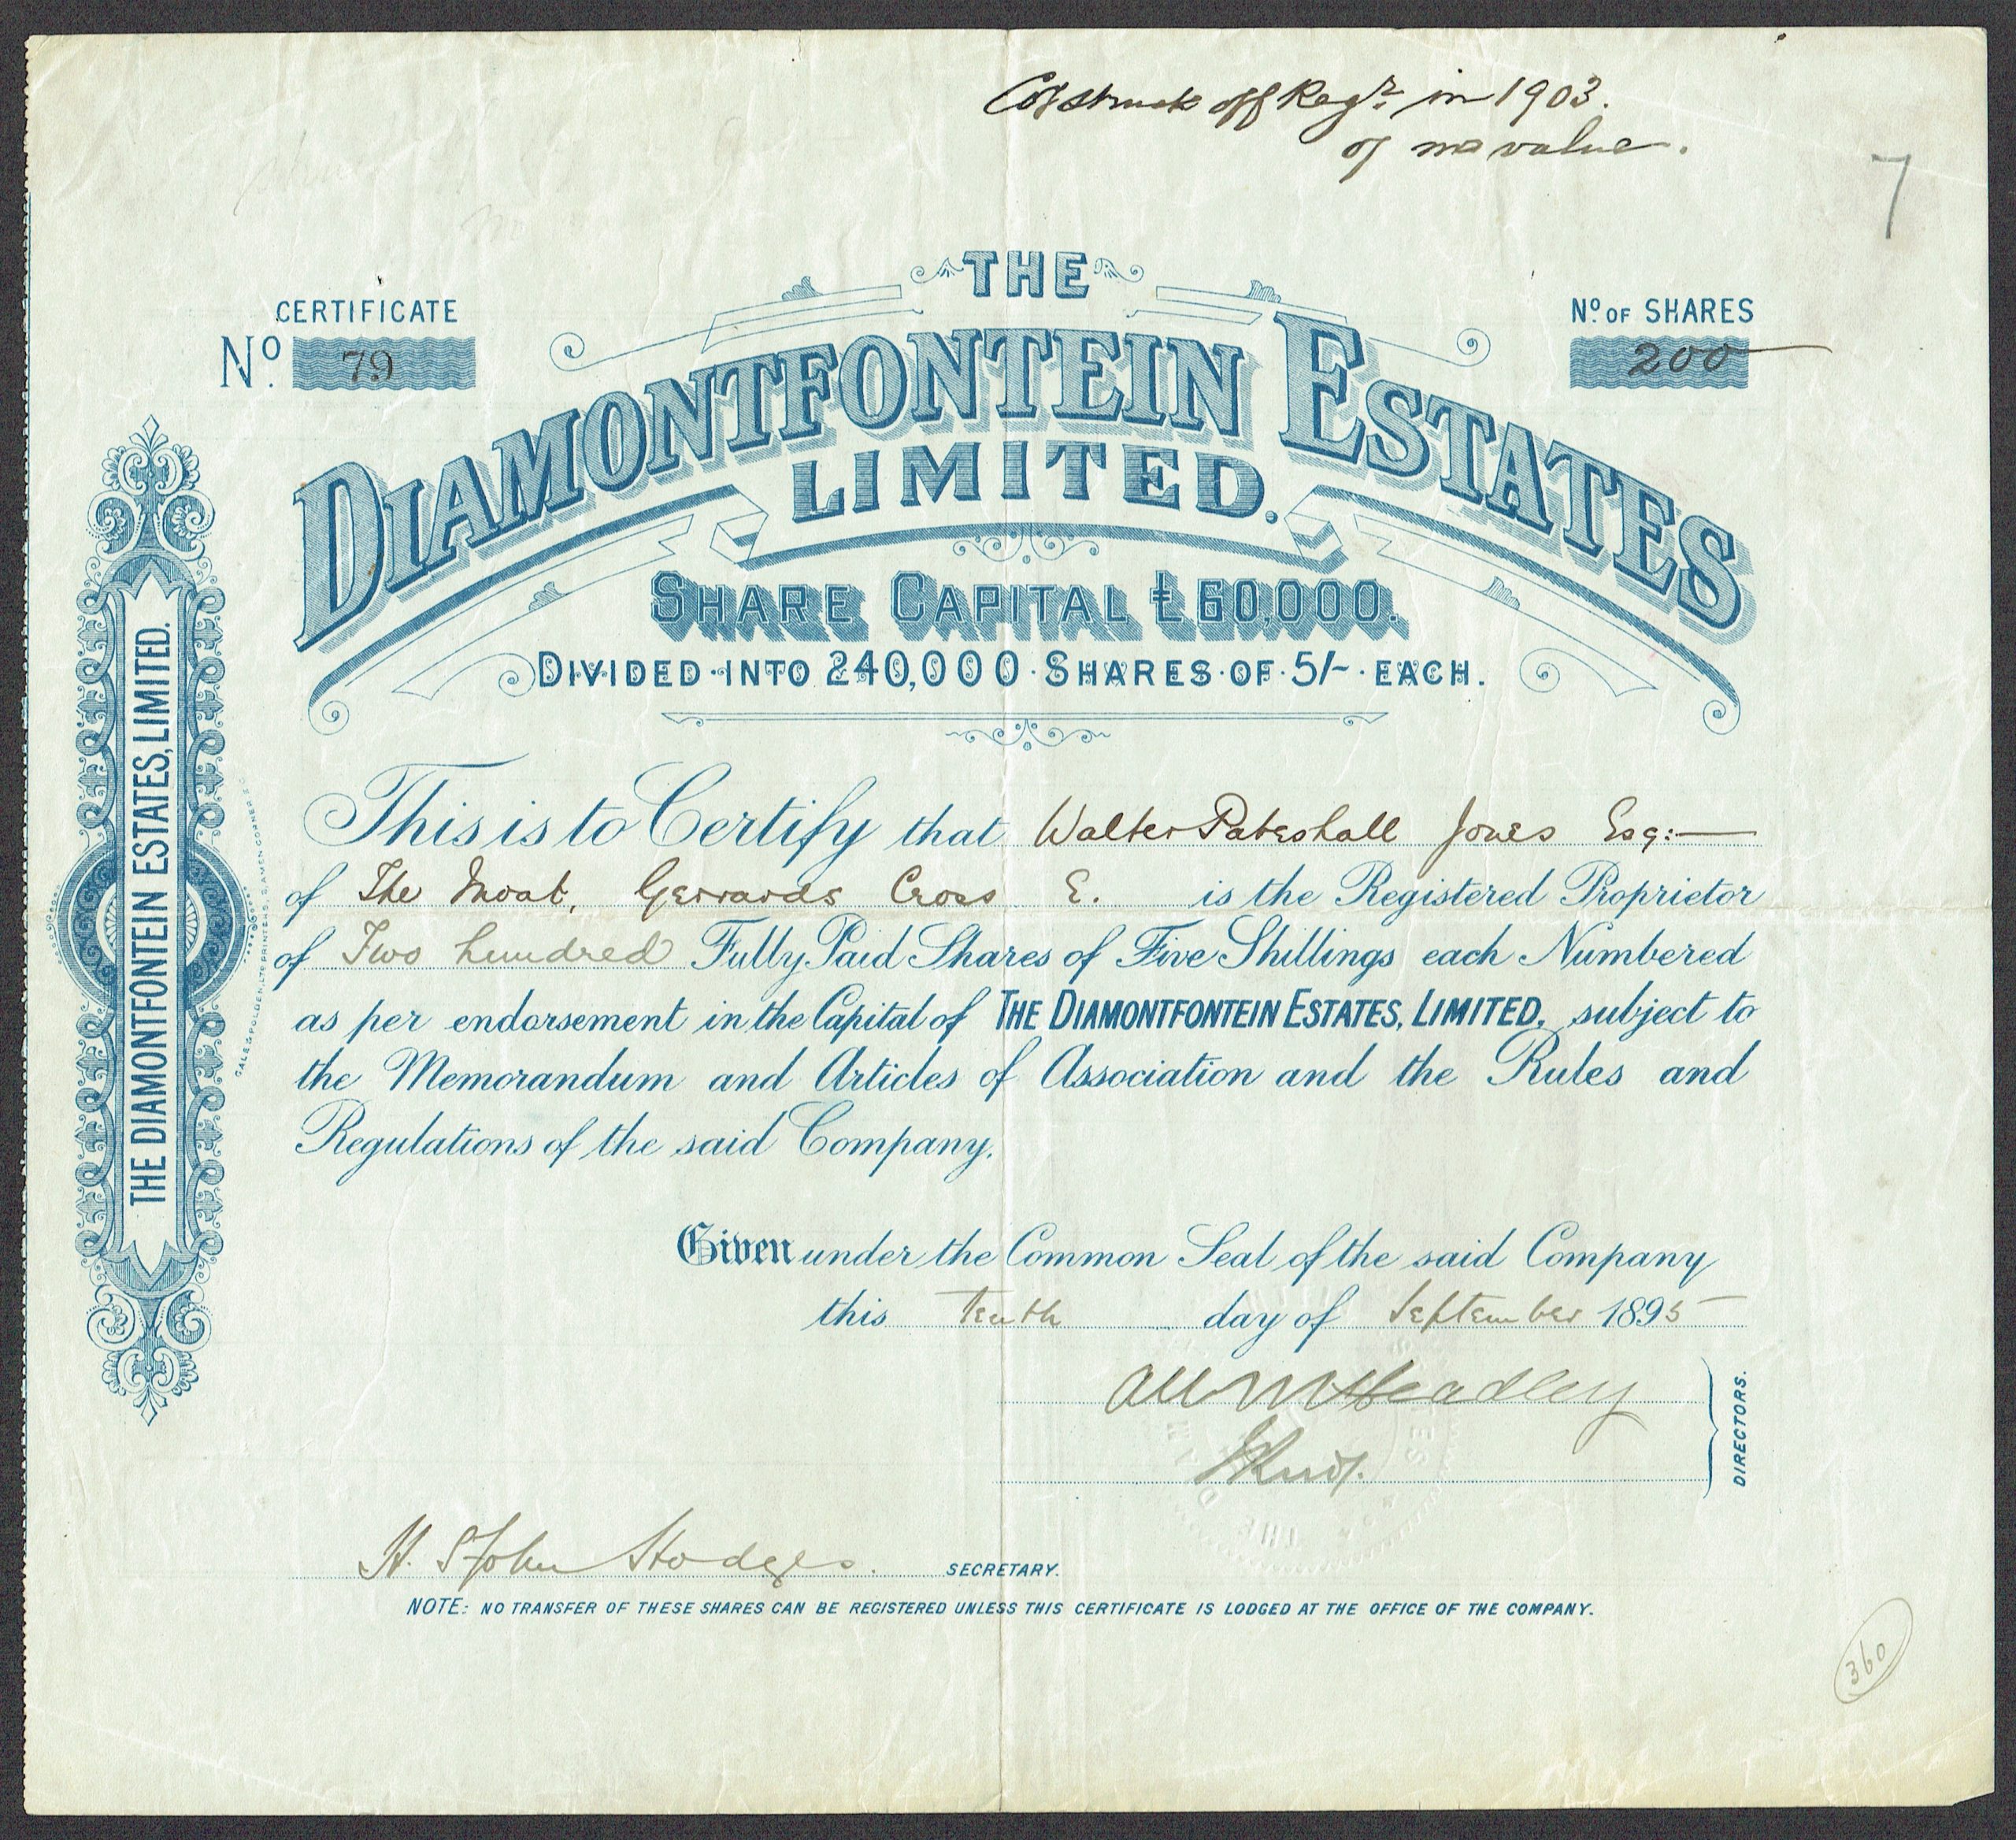 Coy struck off Regr. in 1903.
of no value.
7
CERTIFICATE
No. 79
No. OF SHARES
200
THE
DIAMONTFONTEIN ESTATES
LIMITED.
SHARE CAPITAL £60,000.
DIVIDED·INTO 240,000·SHARES·OF·5/-·EACH.
THE DIAMONTFONTEIN ESTATES, LIMITED.
This is to Certify that Walter Pateshall Jones Esq:
of The Moat, Gerrards Cross E. is the Registered Proprietor
of Two hundred Fully Paid Shares of Five Shillings each Numbered
as per endorsement in the Capital of THE DIAMONTFONTEIN ESTATES, LIMITED, subject to
the Memorandum and Articles of Association and the Rules and
Regulations of the said Company.
Given under the Common Seal of the said Company
this tenth day of September 1895
Headley
DIRECTORS.
H. St John Hodges. SECRETARY.
NOTE: NO TRANSFER OF THESE SHARES CAN BE REGISTERED UNLESS THIS CERTIFICATE IS LODGED AT THE OFFICE OF THE COMPANY.
360